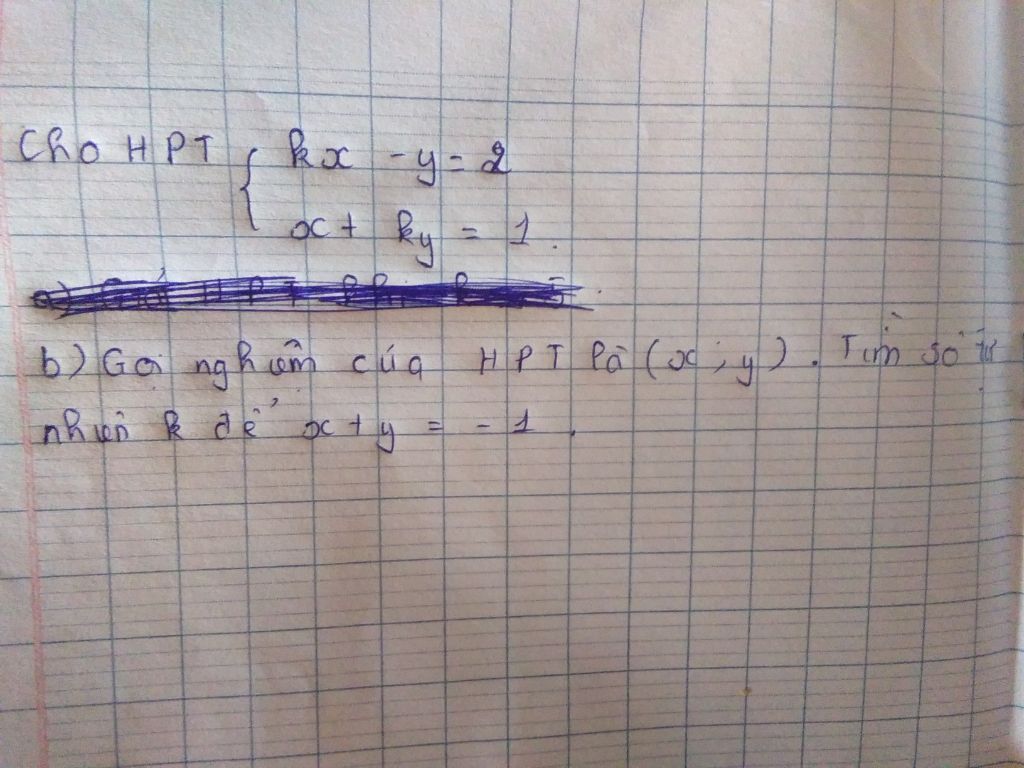 Cho HPT { kx - y = 2
x + ky = 1.
b) Gọi nghiệm của HPT là (x; y). Tìm số tự
nhiên k để x + y = -1.